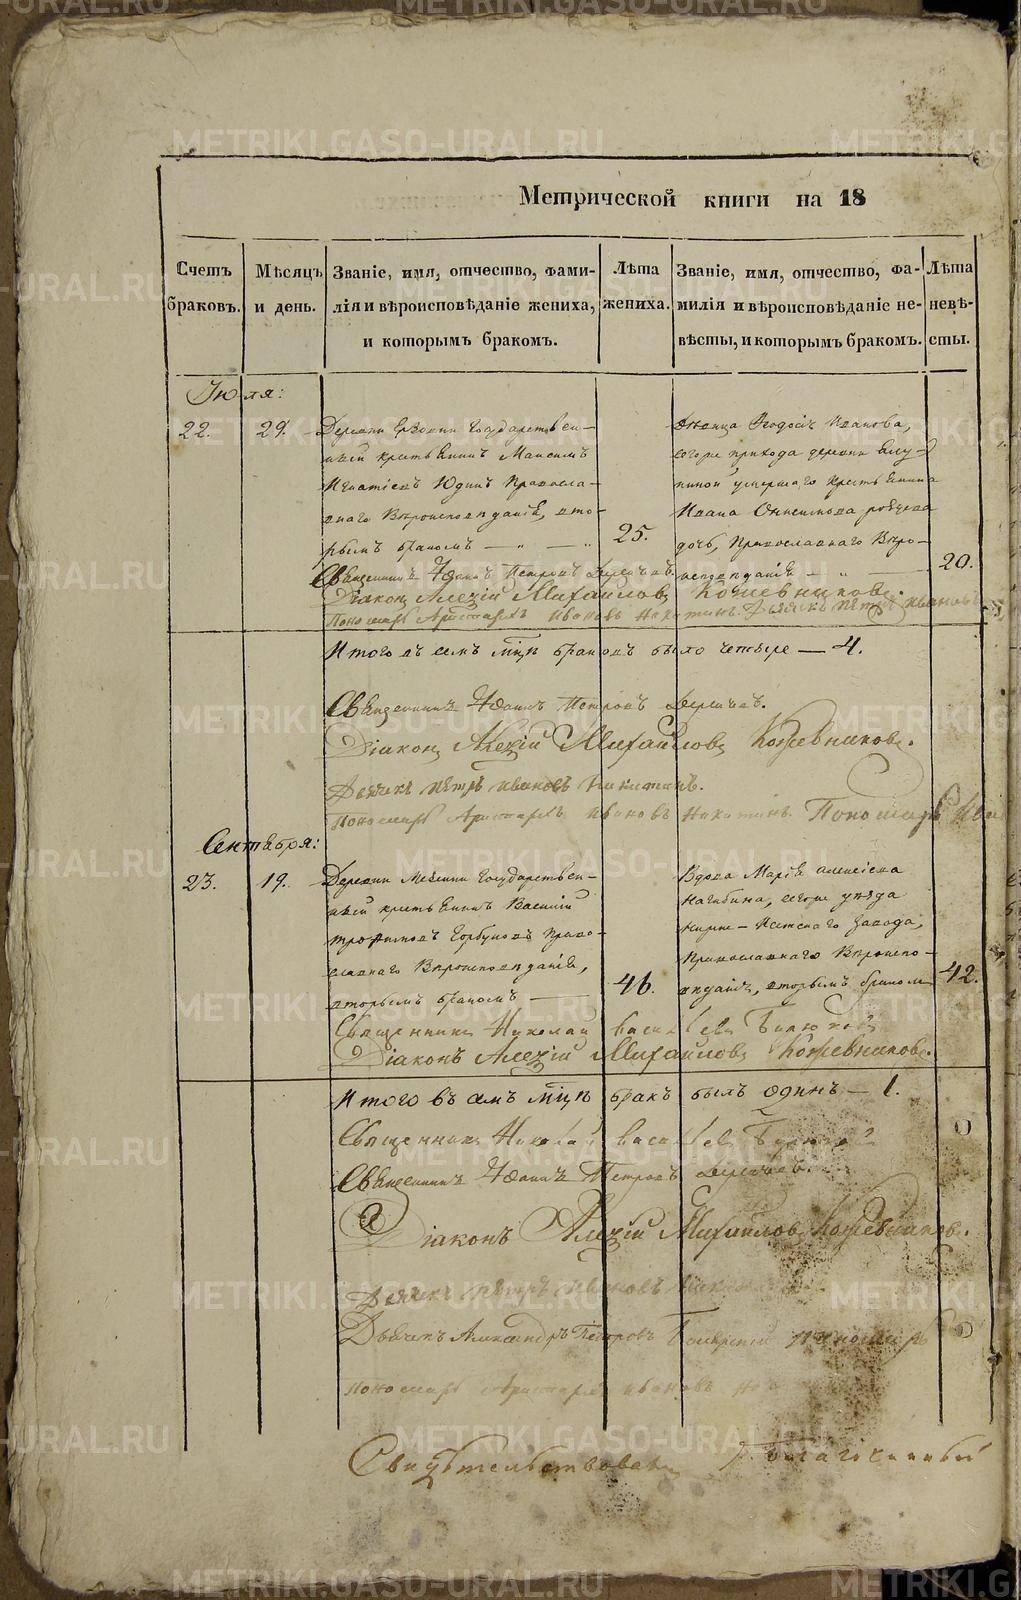 Метрической книги на 18
Счетъ браковъ.
Мѣсяцъ и день.
Званіе, имя, отчество, фами-
лія и вѣроисповѣданіе жениха,
и которымъ бракомъ.
Лѣта жениха.
Званіе, имя, отчество, фа-
милія и вѣроисповѣданіе не-
вѣсты, и которымъ бракомъ.
Лѣта невѣ-
сты.
Іюля:
22.
29.
Деревни Государствен-
ный крестьянинъ Максимъ
Игнатіевъ Юдинъ Правосла-
внаго Вѣроисповѣданія, вто-
рымъ бракомъ
25.
Дѣвица Ѳеодосія Иванова,
тогоже прихода деревни
умершаго крестьянина
Ивана
дочь, Православнаго Вѣро-
исповѣданія
20.
Священникъ Іоаннъ Петровъ
Діаконъ Алексій Михайловъ Кожевниковъ.
Пономарь Аристархъ Ивановъ Никитинъ. Дьячекъ Петръ Ивановъ
Итого въ семъ мцѣ браковъ было четыре — 4.
Священникъ Іоаннъ Петровъ
Діаконъ Алексій Михайловъ Кожевниковъ.
Дьячекъ Петръ Ивановъ Никитинъ.
Пономарь Аристархъ Ивановъ Никитинъ. Пономарь
Сентября:
23.
19.
Деревни Государствен-
ный крестьянинъ Василій
Трофимовъ Горбуновъ Право-
славнаго Вѣроисповѣданія,
вторымъ бракомъ
46.
Вдова Марія Алексіева
Нагибина, тогоже уѣзда
Нижне-Исетскаго завода,
Православнаго Вѣроиспо-
вѣданія, вторымъ бракомъ
42.
Священникъ Николай Васильевъ Бирюковъ
Діаконъ Алексій Михайловъ Кожевниковъ.
Итого въ семъ мцѣ бракъ былъ одинъ — 1.
Священникъ Николай Васильевъ
Священникъ Іоаннъ Петровъ
Діаконъ Алексій Михайловъ Кожевниковъ.
Дьячекъ Петръ Ивановъ
Дьячекъ Александръ Петровъ
Пономарь Аристархъ Ивановъ
Свидѣтельствовалъ Благочинный
METRIKI.GASO-URAL.RU